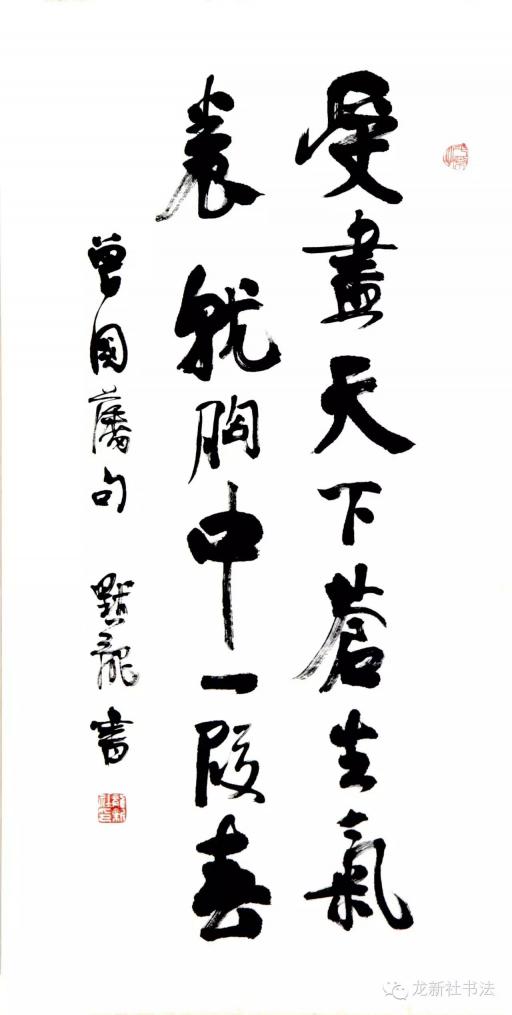 受盡天下蒼生氣
養就胸中一段春
曾國藩句 默龍書
龙新社书法